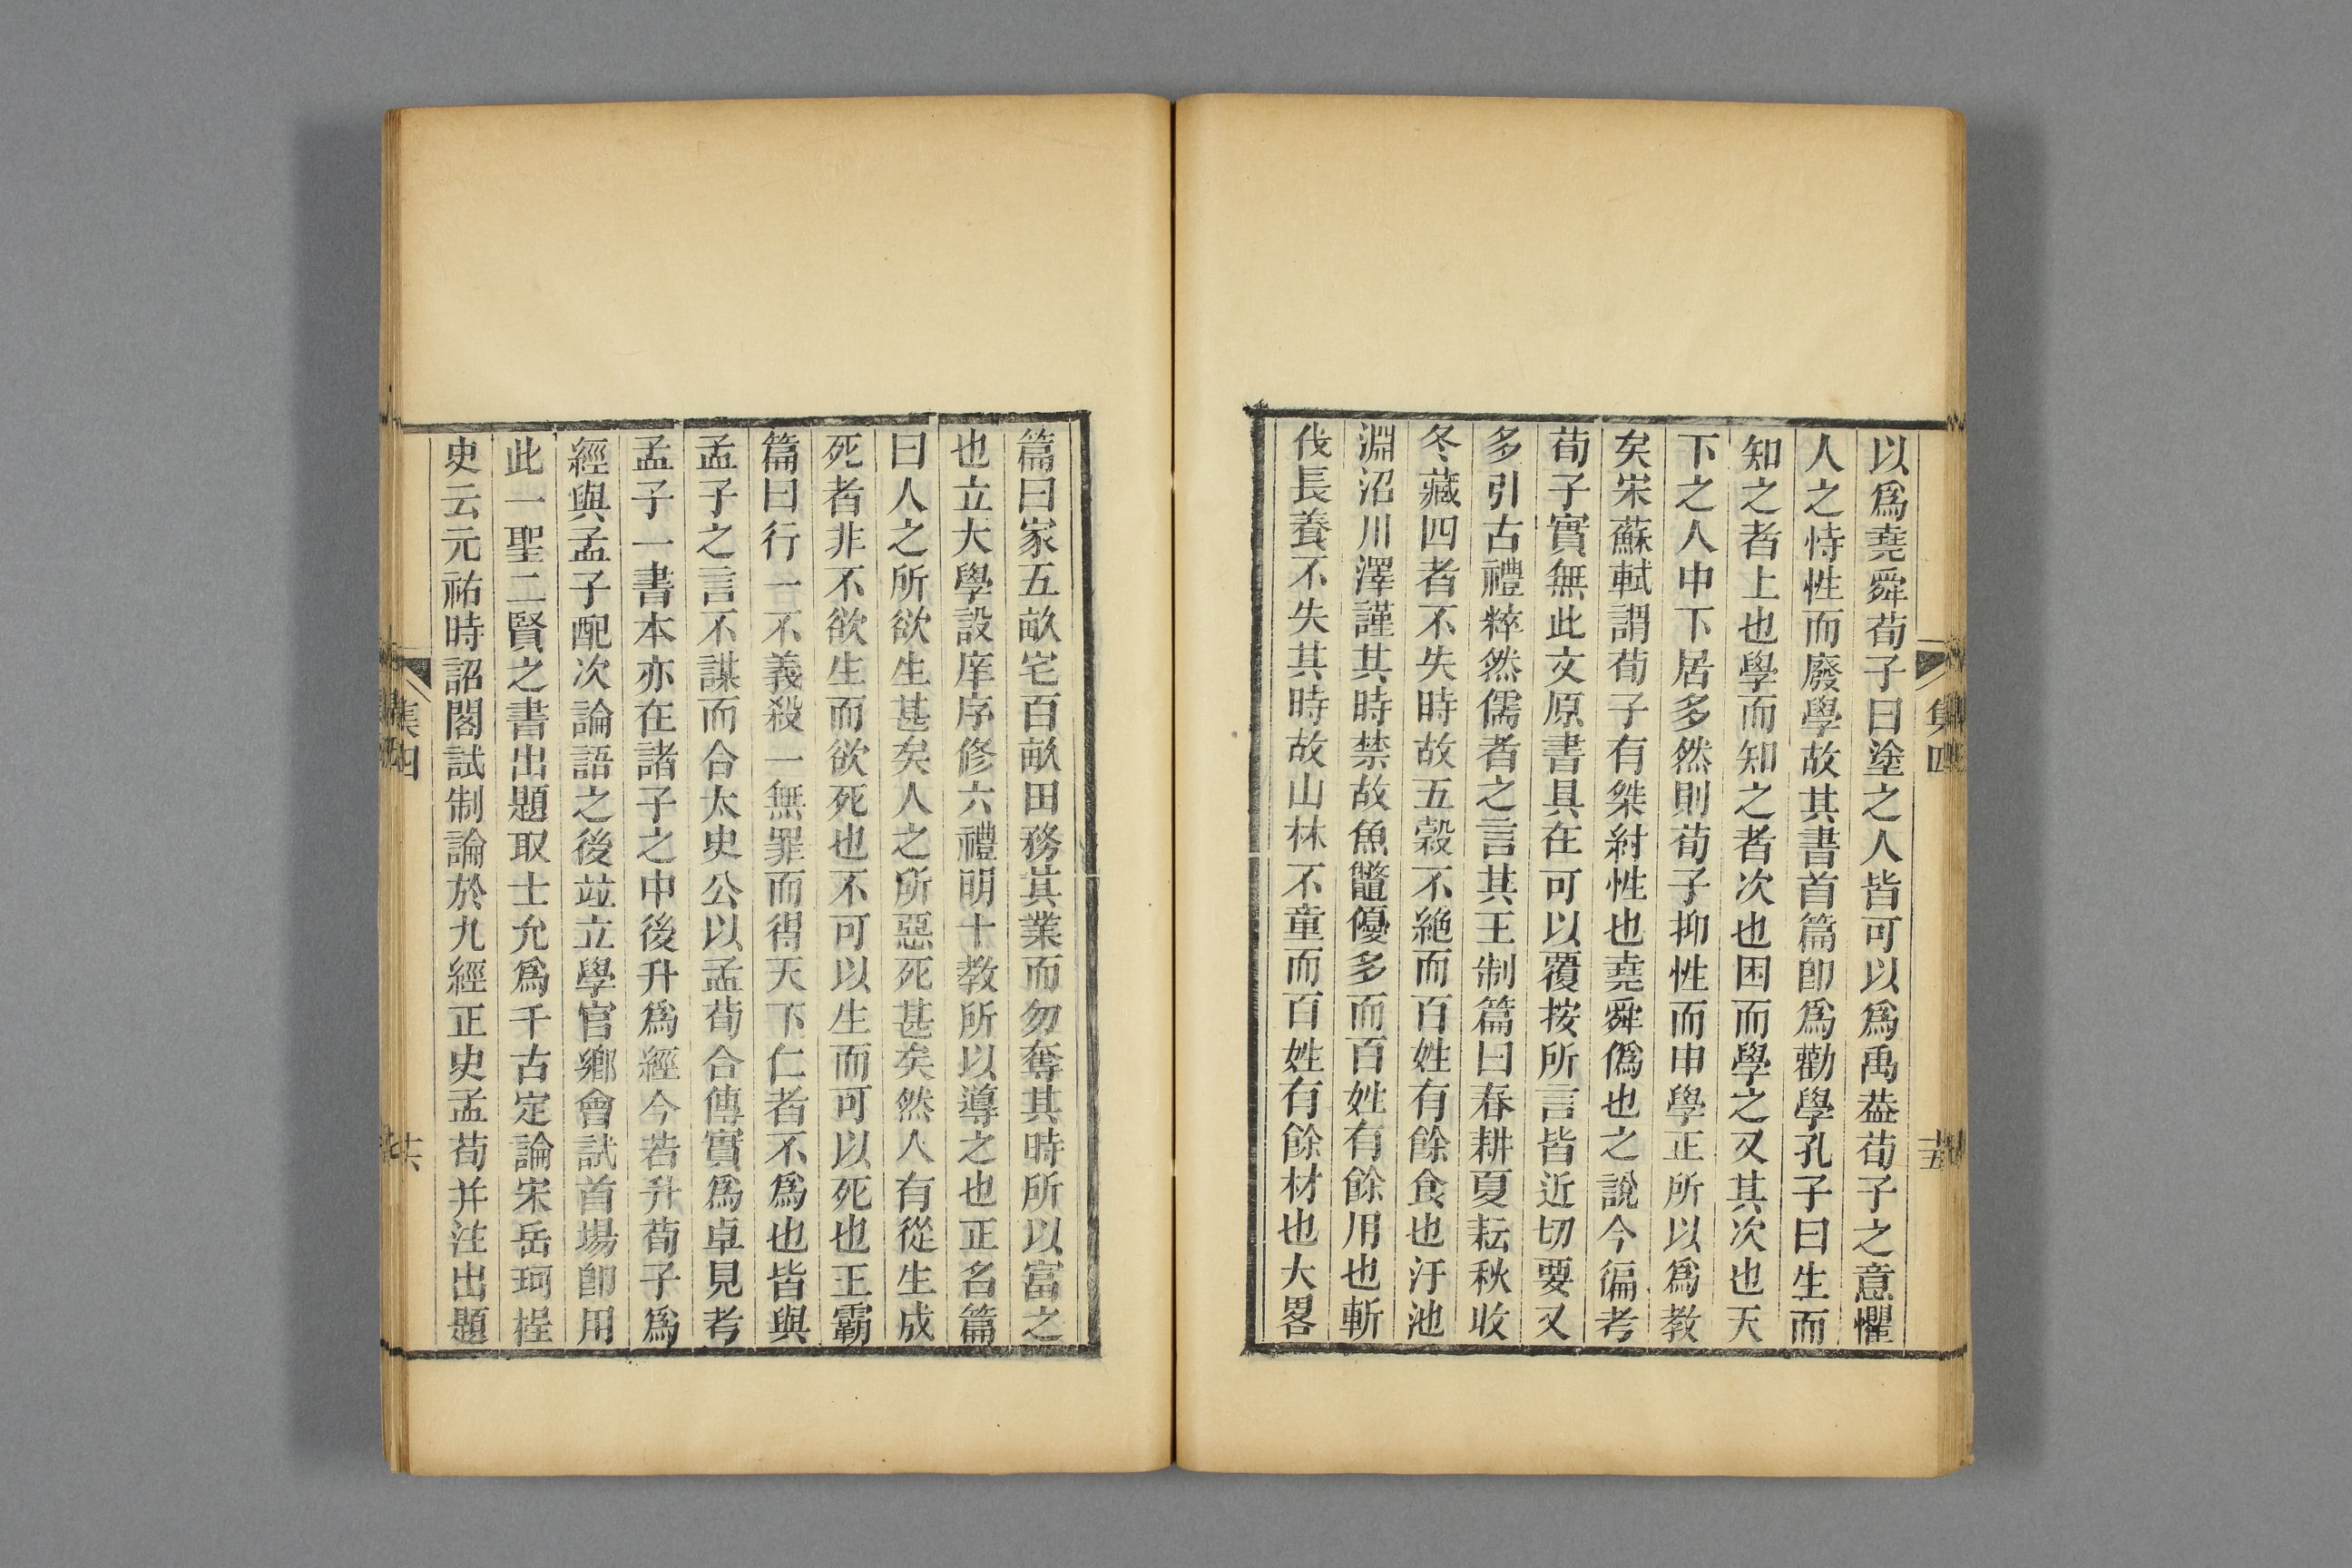 以爲堯舜荀子曰塗之人皆可以爲禹葢荀子之意懼
人之恃性而廢學故其書首篇卽爲勸學孔子曰生而
知之者上也學而知之者次也困而學之又其次也天
下之人中下居多然則荀子抑性而申學正所以爲教
矣宋蘇軾謂荀子有桀紂性也堯舜僞也之說今徧考
荀子實無此文原書具在可以覆按所言皆近切要又
多引古禮粹然儒者之言其王制篇曰春耕夏耘秋收
冬藏四者不失時故五穀不絶而百姓有餘食也汙池
淵沼川澤謹其時禁故魚鼈優多而百姓有餘用也斬
伐長養不失其時故山林不童而百姓有餘材也大畧
篇曰家五畝宅百畝田務其業而勿奪其時所以富之
也立大學設庠序修六禮明十教所以導之也正名篇
曰人之所欲生甚矣人之所惡死甚矣然人有從生成
死者非不欲生而欲死也不可以生而可以死也王霸
篇曰行一不義殺一無罪而得天下仁者不爲也皆與
孟子之言不謀而合太史公以孟荀合傳實爲卓見考
孟子一書本亦在諸子之中後升爲經今若升荀子爲
經與孟子配次論語之後竝立學官鄉會試首場卽用
此一聖二賢之書出題取士允爲千古定論宋岳珂桯
史云元祐時詔閣試制論於九經正史孟荀并注出題
集四
十六